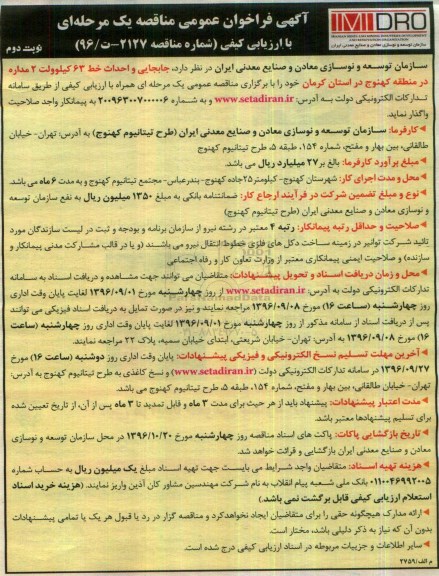 IMIDRO
سازمان توسعه و نوسازی معادن و صنایع معدنی ایران
آگهی فراخوان عمومی مناقصه یک مرحله‌ای
با ارزیابی کیفی (شماره مناقصه ۲۱۲۷-ت/۹۶)
نوبت دوم
سازمان توسعه و نوسازی معادن و صنایع معدنی ایران در نظر دارد، جابجایی و احداث خط ۶۳ کیلوولت ۲ مداره
در منطقه کهنوج در استان کرمان خود را با برگزاری مناقصه عمومی یک مرحله ای همراه با ارزیابی کیفی از طریق سامانه
تدارکات الکترونیکی دولت به آدرس: www.setadiran.ir و به شماره ۲۰۰۹۶۳۰۰۷۰۰۰۰۰۶ به پیمانکار واجد صلاحیت
واگذار نماید.
کارفرما: سازمان توسعه و نوسازی معادن و صنایع معدنی ایران (طرح تیتانیوم کهنوج) به آدرس: تهران- خیابان
طالقانی، بین بهار و مفتح، شماره ۱۵۴، طبقه ۵، طرح تیتانیوم کهنوج
مبلغ برآورد کارفرما: بالغ بر ۲۷ میلیارد ریال می باشد.
محل و مدت اجرای کار: شهرستان کهنوج- کیلومتر ۲۵ جاده کهنوج- بندرعباس- مجتمع تیتانیوم کهنوج و به مدت ۶ ماه می باشد.
نوع و مبلغ تضمین شرکت در فرآیند ارجاع کار: ضمانتنامه بانکی به مبلغ ۱۳۵۰ میلیون ریال به نفع سازمان توسعه
و نوسازی معادن و صنایع معدنی ایران (طرح تیتانیوم کهنوج)
صلاحیت و حداقل رتبه پیمانکار: رتبه ۴ معتبر در رشته نیرو از سازمان برنامه و بودجه و ثبت در لیست سازندگان مورد
تائید شرکت توانیر در زمینه ساخت دکل های فلزی خطوط انتقال نیرو می باشند (و یا در قالب مشارکت مدنی پیمانکار و
سازنده) و صلاحیت ایمنی پیمانکاری معتبر از وزارت تعاون کار و رفاه اجتماعی
محل و زمان دریافت اسناد و تحویل پیشنهادات: متقاضیان می توانند جهت مشاهده و دریافت اسناد به سامانه
تدارکات الکترونیکی دولت به آدرس: www.setadiran.ir از روز چهارشنبه مورخ ۱۳۹۶/۰۹/۰۱ لغایت پایان وقت اداری
روز چهارشنبه (ساعت ۱۶) مورخ ۱۳۹۶/۰۹/۰۸ مراجعه نمایند و نیز در صورت تمایل به دریافت اسناد فیزیکی می توانند
پس از دریافت اسناد از سامانه مذکور از روز چهارشنبه مورخ ۱۳۹۶/۰۹/۰۱ لغایت پایان وقت اداری روز چهارشنبه (ساعت
۱۶) مورخ ۱۳۹۶/۰۹/۰۸ به آدرس: تهران- خیابان شریعتی، ابتدای خیابان سمیه، پلاک ۲۲ مراجعه نمایند.
آخرین مهلت تسلیم نسخ الکترونیکی و فیزیکی پیشنهادات: پایان وقت اداری روز دوشنبه (ساعت ۱۶) مورخ
۱۳۹۶/۰۹/۲۷ در سامانه تدارکات الکترونیکی دولت (www.setadiran.ir) و نسخ کاغذی به طرح تیتانیوم کهنوج به آدرس:
تهران- خیابان طالقانی، بین بهار و مفتح، شماره ۱۵۴، طبقه ۵، طرح تیتانیوم کهنوج می باشد.
مدت اعتبار پیشنهادات: پیشنهاد باید از هر حیث برای مدت ۳ ماه و قابل تمدید تا ۳ ماه پس از آن، از تاریخ تعیین شده
برای تسلیم پیشنهادها معتبر باشد.
تاریخ بازگشایی پاکات: پاکت های اسناد مناقصه روز چهارشنبه مورخ ۱۳۹۶/۱۰/۲۰ در محل سازمان توسعه و نوسازی
معادن و صنایع معدنی ایران بازگشایی و قرائت خواهد شد.
هزینه تهیه اسناد: متقاضیان واجد شرایط می بایست جهت تهیه اسناد مبلغ یک میلیون ریال به حساب شماره
۰۱۱۰۰۴۶۹۹۲۰۰۵ بانک ملی شعبه پیام انقلاب به نام شرکت مهندسین مشاور کان آذین واریز نمایند. (هزینه خرید اسناد
استعلام ارزیابی کیفی قابل برگشت نمی باشد.)
ارائه مدارک هیچگونه حقی را برای متقاضیان ایجاد نخواهد کرد و مناقصه گزار در رد یا قبول هر یک یا تمامی پیشنهادات
بدون آن که نیاز به ذکر دلیلی باشد، مختار است.
سایر اطلاعات و جزییات مربوطه در اسناد ارزیابی کیفی درج شده است.
م الف/۲۷۵۹